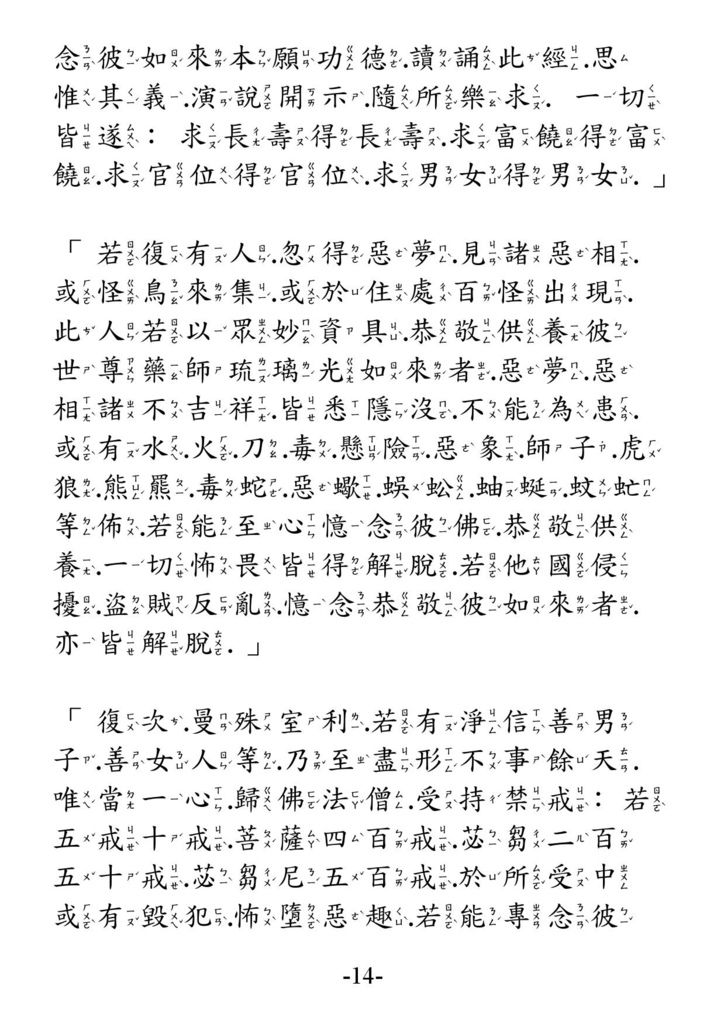 念彼如來本願功德.讀誦此經.思
惟其義.演說開示.隨所樂求.一切
皆遂：求長壽得長壽.求富饒得富
饒.求官位得官位.求男女得男女.」
「若復有人.忽得惡夢.見諸惡相.
或怪鳥來集.或於住處百怪出現.
此人若以眾妙資具.恭敬供養彼
世尊藥師琉璃光如來者.惡夢.惡
相諸不吉祥.皆悉隱沒.不能為患.
或有水.火.刀.毒.懸險.惡象.師子.虎
狼.熊羆.毒蛇.惡蠍.蜈蚣.蚰蜒.蚊虻
等佈.若能至心憶念彼佛.恭敬供
養.一切怖畏皆得解脫.若他國侵
擾.盜賊反亂.憶念恭敬彼如來者.
亦皆解脫.」
「復次.曼殊室利.若有淨信善男
子.善女人等.乃至盡形不事餘天.
唯當一心.歸佛法僧.受持禁戒：若
五戒十戒.菩薩四百戒.苾芻二百
五十戒.苾芻尼五百戒.於所受中
或有毀犯.怖墮惡趣.若能專念彼
-14-